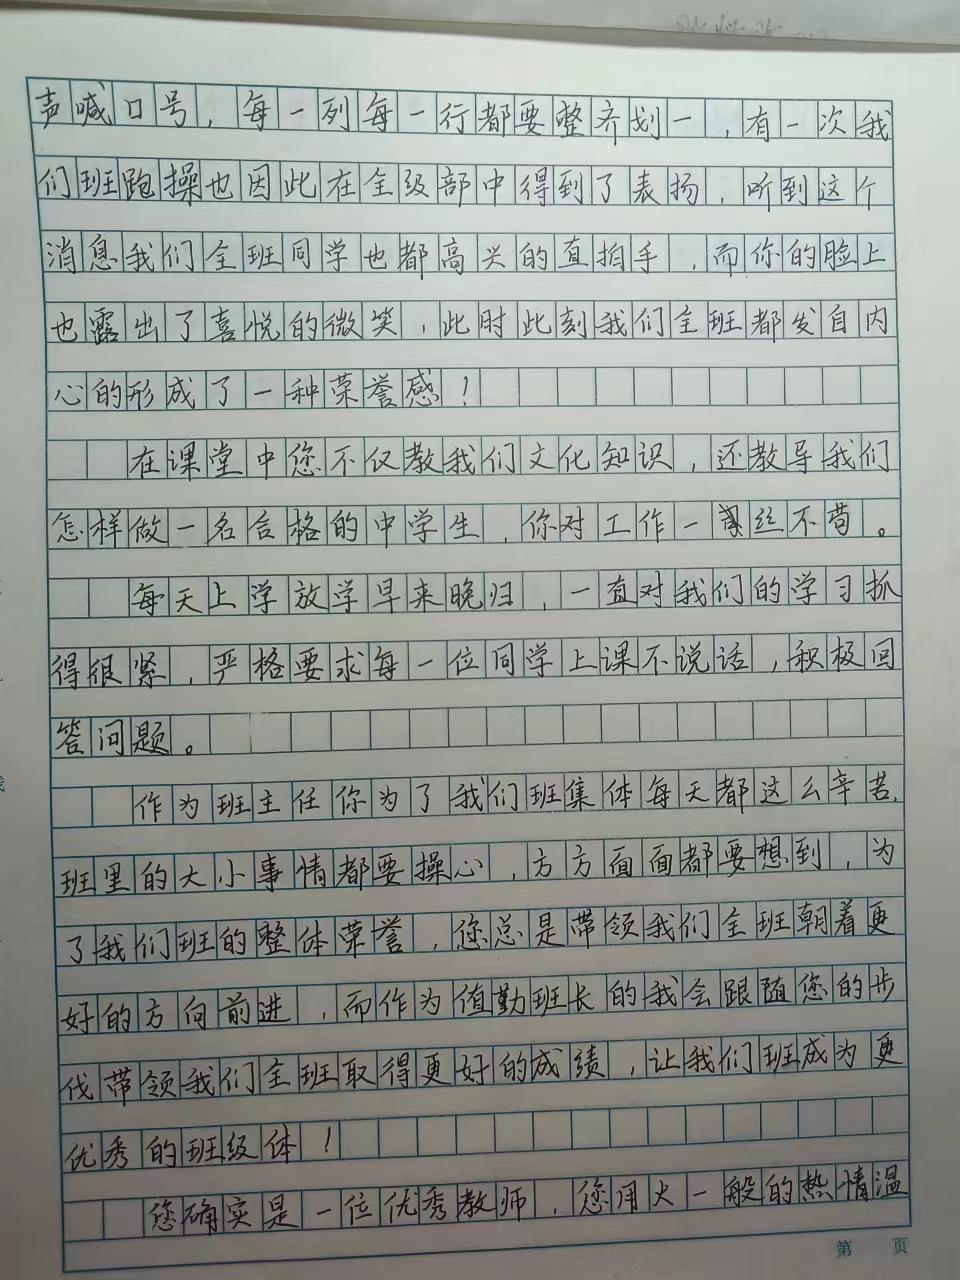 声喊口号，每一列每一行都要整齐划一，有一次我
们班跑操也因此在全级部中得到了表扬，听到这个
消息我们全班同学也都高兴的直拍手，而你的脸上
也露出了喜悦的微笑，此时此刻我们全班都发自内
心的形成了一种荣誉感！
在课堂中您不仅教我们文化知识，还教导我们
怎样做一名合格的中学生，你对工作一丝不苟。
每天上学放学早来晚归，一直对我们的学习抓
得很紧，严格要求每一位同学上课不说话，积极回
答问题。
作为班主任你为了我们班集体每天都这么辛苦，
班里的大小事情都要操心，方方面面都要想到，为
了我们班的整体荣誉，您总是带领我们全班朝着更
好的方向前进，而作为值勤班长的我会跟随您的步
伐带领我们全班取得更好的成绩，让我们班成为更
优秀的班级体！
您确实是一位优秀教师，您用火一般的热情温
第 页